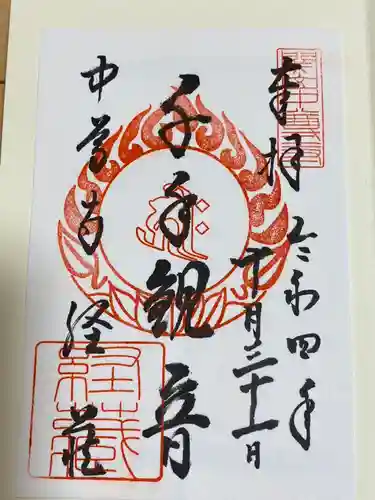 奉拝
令和四年
十月三十一日
千手観音
中尊寺
経蔵
經藏